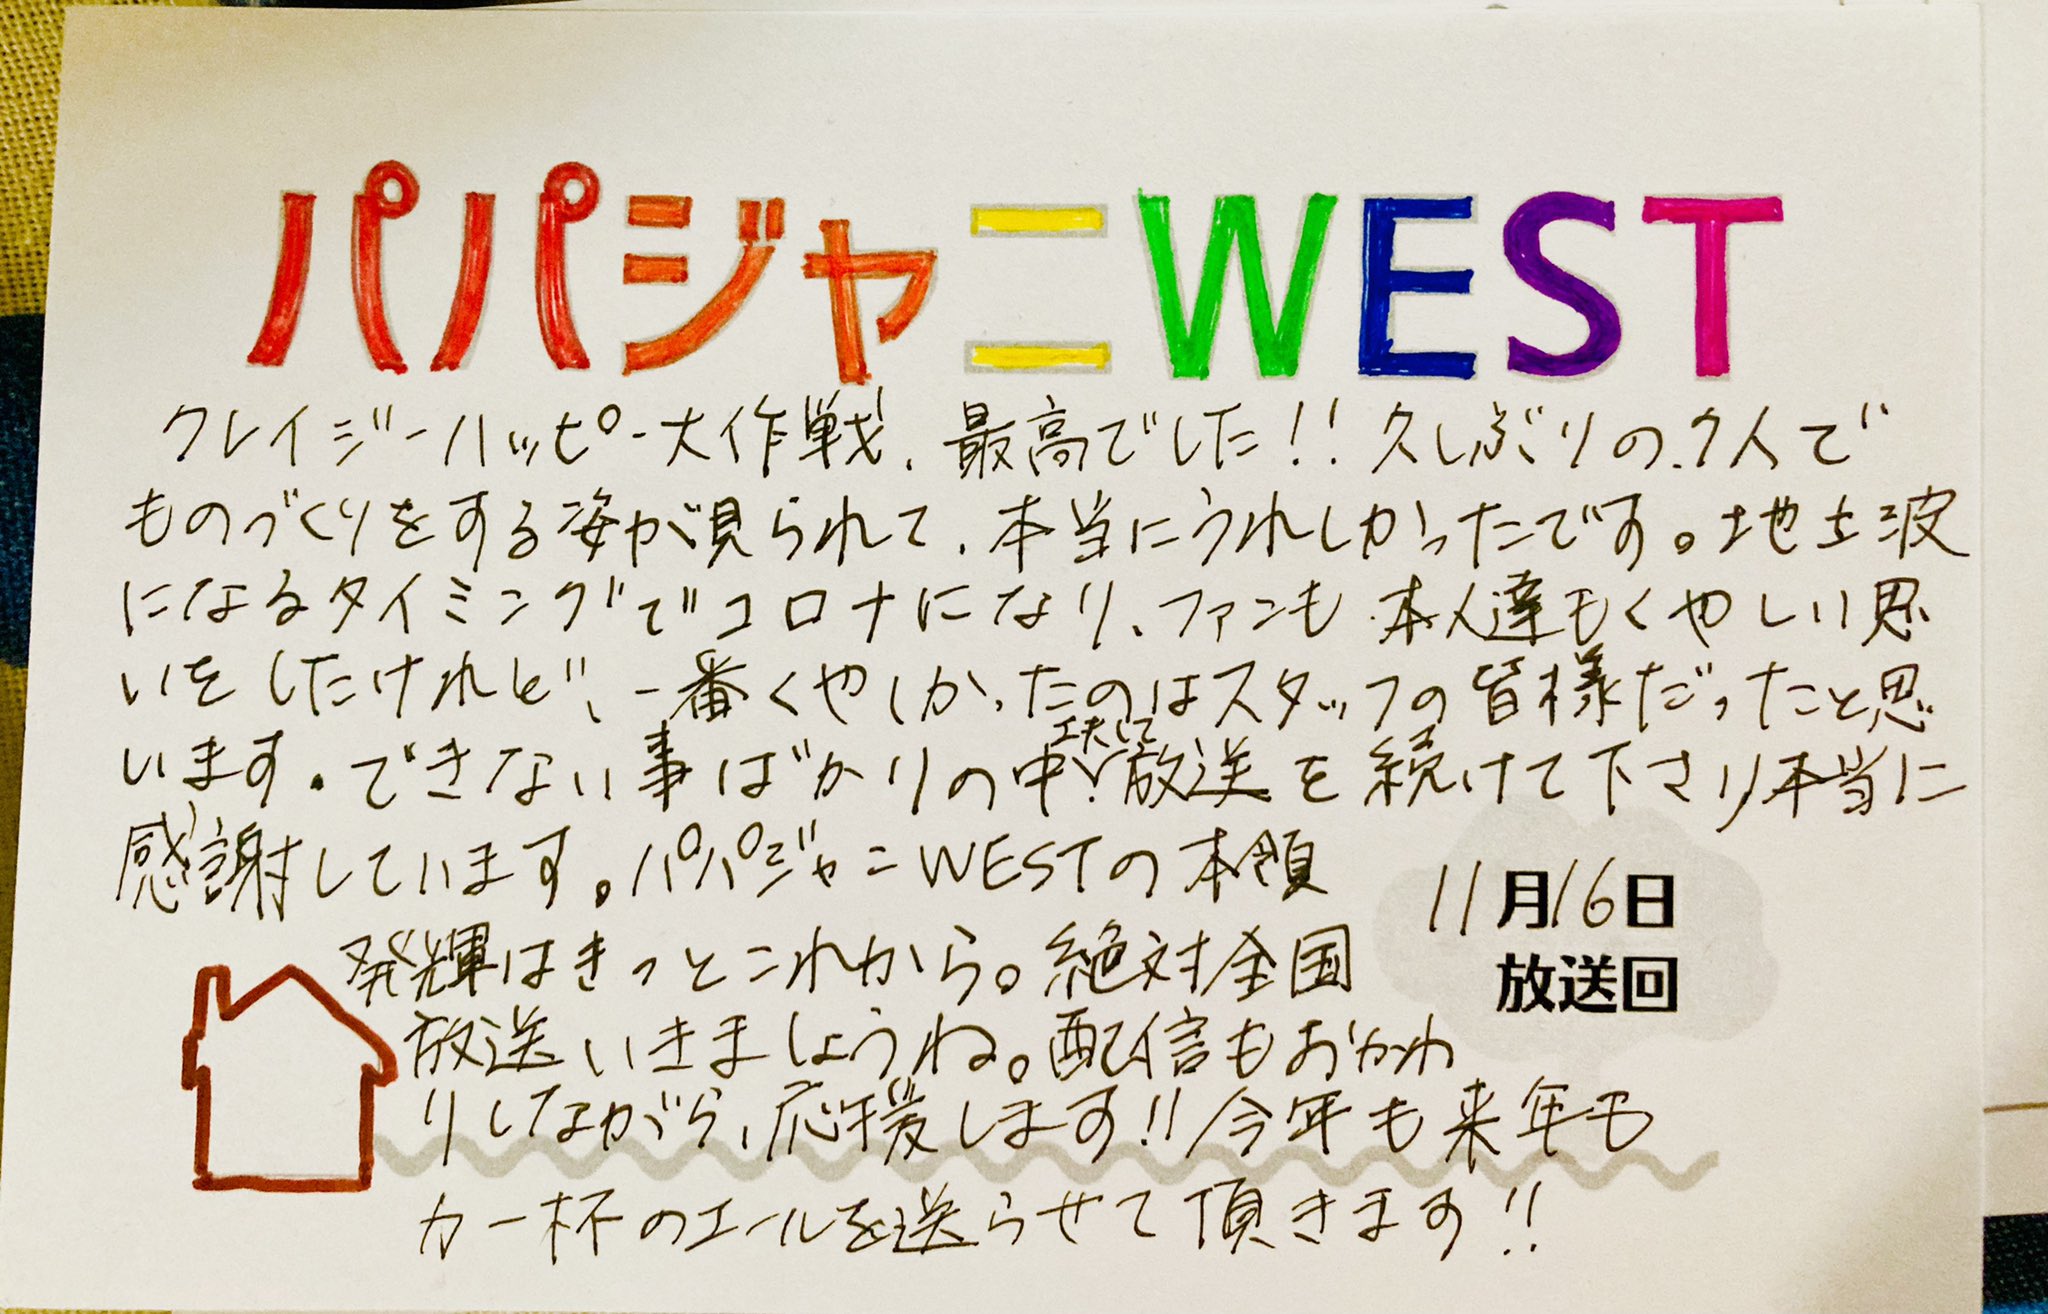 パパジャニWEST
クレイジーハッピー大作戦、最高でした!!久しぶりの、7人で
ものづくりをする姿が見られて、本当にうれしかったです。地上波
になるタイミングでコロナになり、ファンも本人達もくやしい思
いをしたけれど、一番くやしかったのはスタッフの皆様だったと思
います。できない事ばかりの中、工夫して放送を続けて下さり本当に
感謝しています。パパジャニWESTの本領
発輝はきっとこれから。絶対全国
放送いきましょうね。配信もおかわ
りしながら、応援します!!今年も来年も
力一杯のエールを送らせて頂きます!!
11月16日
放送回